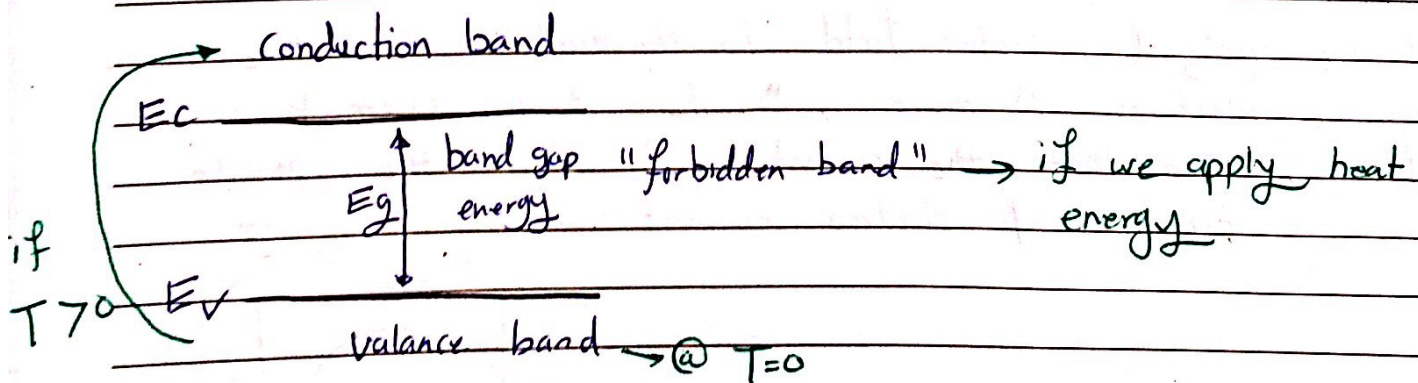 Conduction band
Ec
band gap "forbidden band" → if we apply heat
Eg energy energy
if
T>0 Ev
valance band → @ T=0